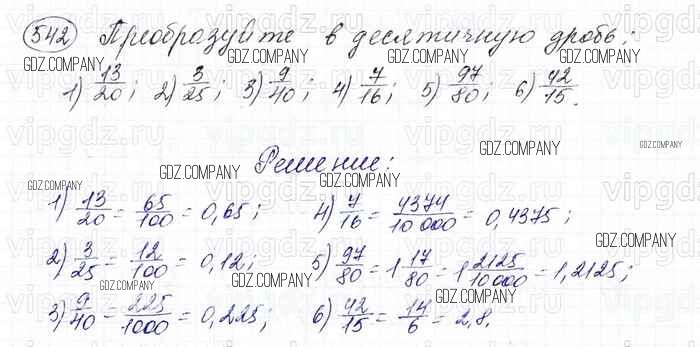 542 Преобразуйте в десятичную дробь:
1) 13/20; 2) 3/25; 3) 9/40; 4) 7/16; 5) 97/80; 6) 42/15.
Решение:
1) 13/20 = 65/100 = 0,65;
2) 3/25 = 12/100 = 0,12;
3) 9/40 = 225/1000 = 0,225;
4) 7/16 = 4374/10 000 = 0,4375;
5) 97/80 = 1 17/80 = 1 2125/10000 = 1,2125;
6) 42/15 = 14/6 = 2,8.
GDZ.COMPANY
GDZ.COMPANY
GDZ.COMPANY
GDZ.COMPANY
GDZ.COMPANY
GDZ.COMPANY
GDZ.COMPANY
GDZ.COMPANY
GDZ.COMPANY
GDZ.COMPANY
GDZ.COMPANY
GDZ.COMPANY
GDZ.COMPANY
vipgdz.ru
vipgdz.ru
vipgdz.ru
vipgdz.ru